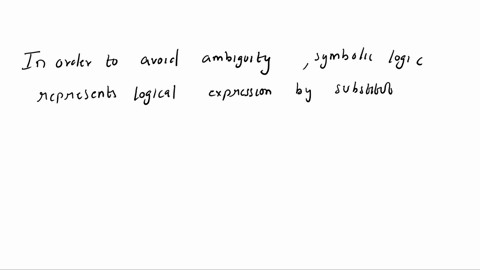 In order to avoid ambiguity , symbolic logic
represents logical expression by